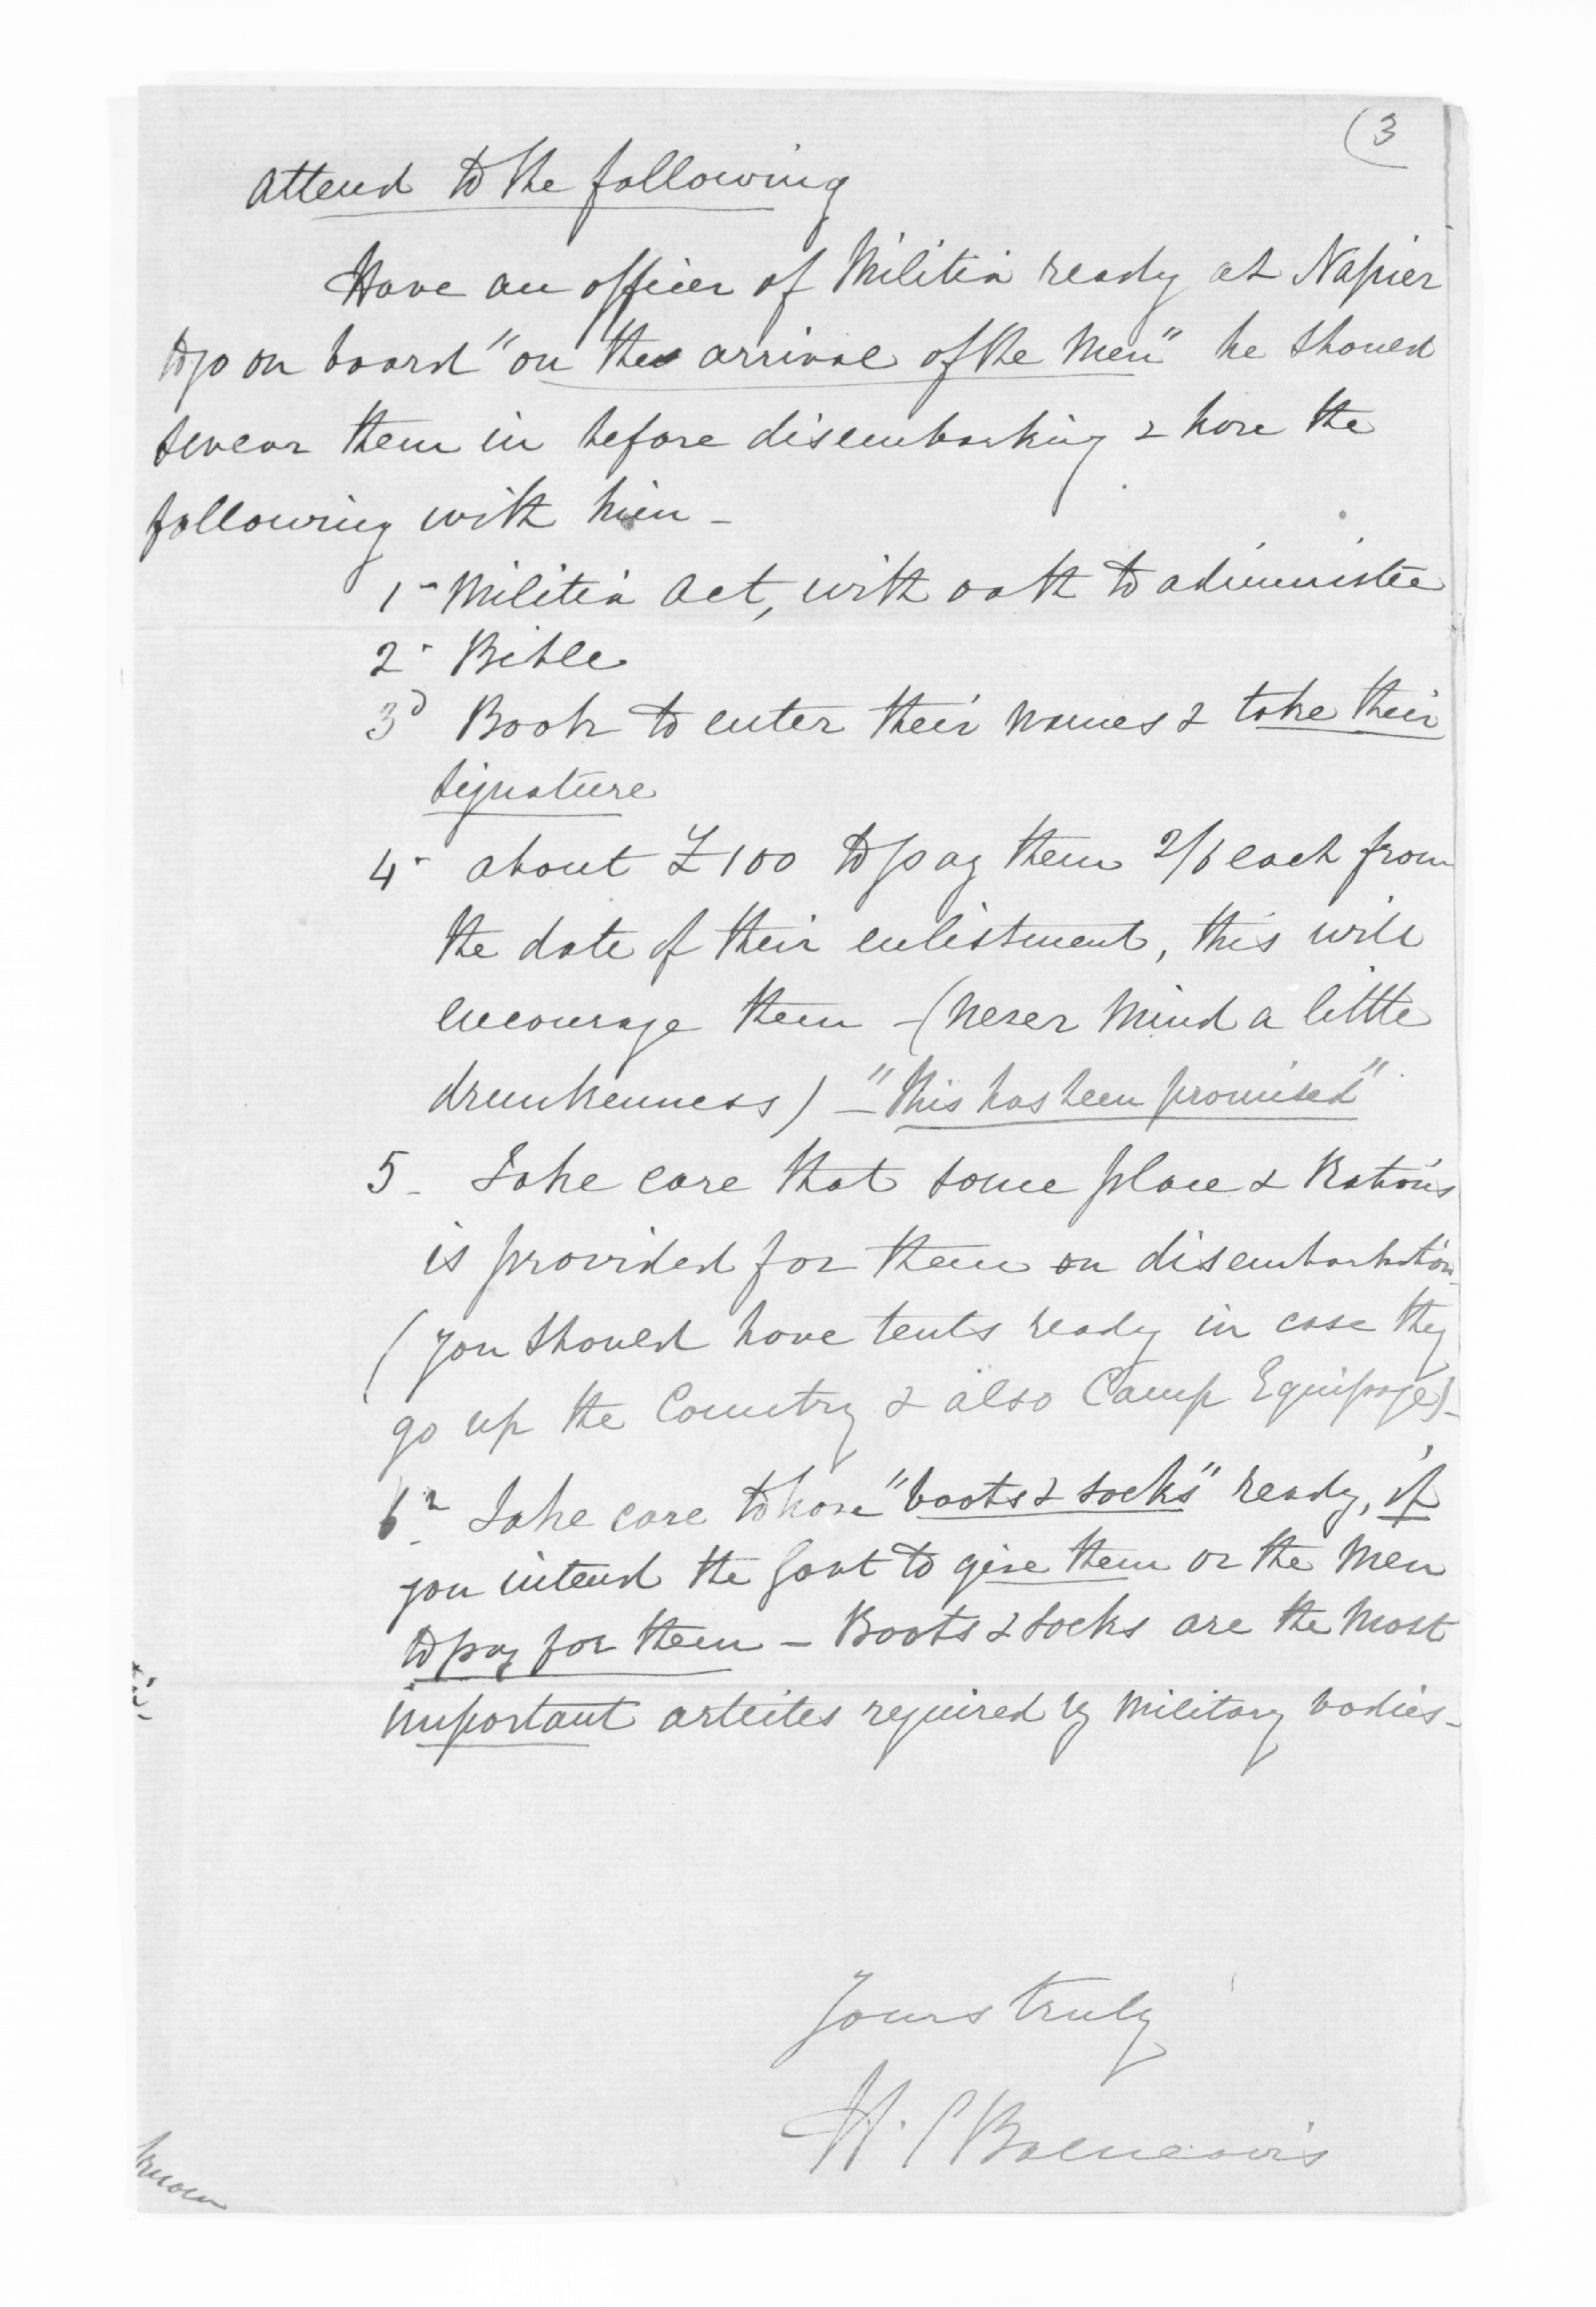 (3
Attend to the following
Have an officer of Militia ready at Napier
to go on board "on the arrival of the Men" he should
swear them in before disembarking & have the
following with him -
1 - Militia Act, with oath to administer
2 - Bible
3d Book to enter their names & take their
signature
4 - about £100 to pay them 2/6 each from
the date of their enlistment, this will
encourage them - (never mind a little
drunkenness) - "this has been promised"
5 - Take care that some place & Rations
is provided for them on disembarkation
(you should have tents ready in case they
go up the Country & also Camp Equipage) -
6 - Take care to have "boots & socks" ready, if
you intend the Govt to give them or the Men
to pay for them - Boots & socks are the most
important articles required by Military bodies -
Yours truly
H. C Balneavis